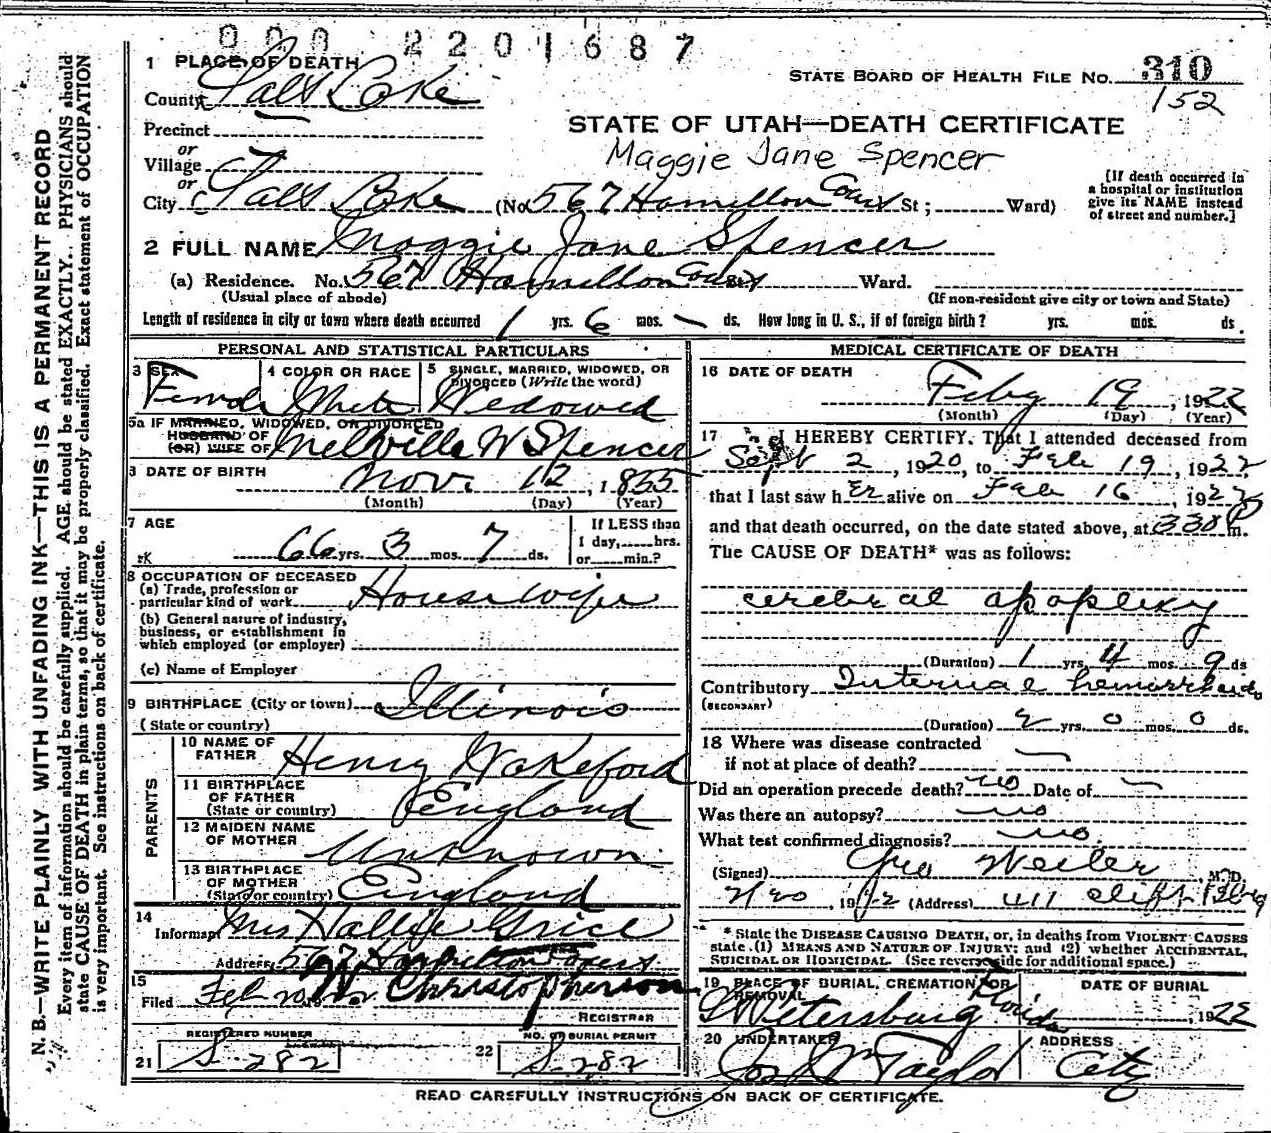 000 2201687
1 PLACE OF DEATH
STATE BOARD OF HEALTH FILE NO. 310
County Salt Lake
152
Precinct
STATE OF UTAH—DEATH CERTIFICATE
or
Village
Maggie Jane Spencer
or
City Salt Lake (No 567 Hamilton Court St; Ward)
[If death occurred in
a hospital or institution
give its NAME instead
of street and number.]
2 FULL NAME Maggie Jane Spencer
(a) Residence. No. 567 Hamilton Court St. Ward.
(Usual place of abode)
(If non-resident give city or town and State)
Length of residence in city or town where death occurred 1 yrs. 6 mos. — ds. How long in U. S., if of foreign birth? yrs. mos. ds.
PERSONAL AND STATISTICAL PARTICULARS
3 SEX 4 COLOR OR RACE 5 SINGLE, MARRIED, WIDOWED, OR
DIVORCED (Write the word)
Female White Widowed
5a IF MARRIED, WIDOWED, OR DIVORCED
HUSBAND OF
(OR) WIFE OF Mellville W Spencer
6 DATE OF BIRTH
Nov. 12, 1855
(Month) (Day) (Year)
7 AGE
66 yrs. 3 mos. 7 ds.
If LESS than
1 day,.....hrs.
or......min.?
8 OCCUPATION OF DECEASED
(a) Trade, profession or
particular kind of work Housewife
(b) General nature of industry,
business, or establishment in
which employed (or employer)
(c) Name of Employer
9 BIRTHPLACE (City or town) Illinois
(State or country)
PARENTS
10 NAME OF
FATHER Henry Wakeford
11 BIRTHPLACE
OF FATHER
(State or country) England
12 MAIDEN NAME
OF MOTHER Unknown
13 BIRTHPLACE
OF MOTHER
(State or country) England
14
Informant Mrs Hallie Grice
Address 567 Hamilton Court
15
Filed Feb 20 Christopherson
REGISTRAR
REGISTERED NUMBER
21 S-282
NO. OF BURIAL PERMIT
22 S-282
MEDICAL CERTIFICATE OF DEATH
16 DATE OF DEATH
Feby 19, 1922
(Month) (Day) (Year)
17 I HEREBY CERTIFY. That I attended deceased from
Sept 2, 1920, to Feb 19, 1922
that I last saw her alive on Feb 16 1922
and that death occurred, on the date stated above, at 330 P m.
The CAUSE OF DEATH* was as follows:
cerebral apoplexy
(Duration) 1 yrs. 4 mos. 9 ds
Contributory Internal hemorrhoids
(SECONDARY)
(Duration) 2 yrs. 0 mos. 0 ds.
18 Where was disease contracted
if not at place of death? —
Did an operation precede death? no Date of —
Was there an autopsy? no
What test confirmed diagnosis? no
(Signed) Geo Weiler, M.D.
(Address) 411 Clift Bldg
* State the DISEASE CAUSING DEATH, or, in deaths from VIOLENT CAUSES
state (1) MEANS AND NATURE OF INJURY: and (2) whether ACCIDENTAL,
SUICIDAL OR HOMICIDAL. (See reverse side for additional space.)
19 PLACE OF BURIAL, CREMATION OR
REMOVAL
DATE OF BURIAL
Petersburg Florida
1922
20 UNDERTAKER
ADDRESS
Jos Wm Taylor City
READ CAREFULLY INSTRUCTIONS ON BACK OF CERTIFICATE.
N. B.—WRITE PLAINLY WITH UNFADING INK—THIS IS A PERMANENT RECORD
Every item of information should be carefully supplied. AGE should be stated EXACTLY. PHYSICIANS should
state CAUSE OF DEATH in plain terms, so that it may be properly classified. Exact statement of OCCUPATION
is very important. See instructions on back of certificate.